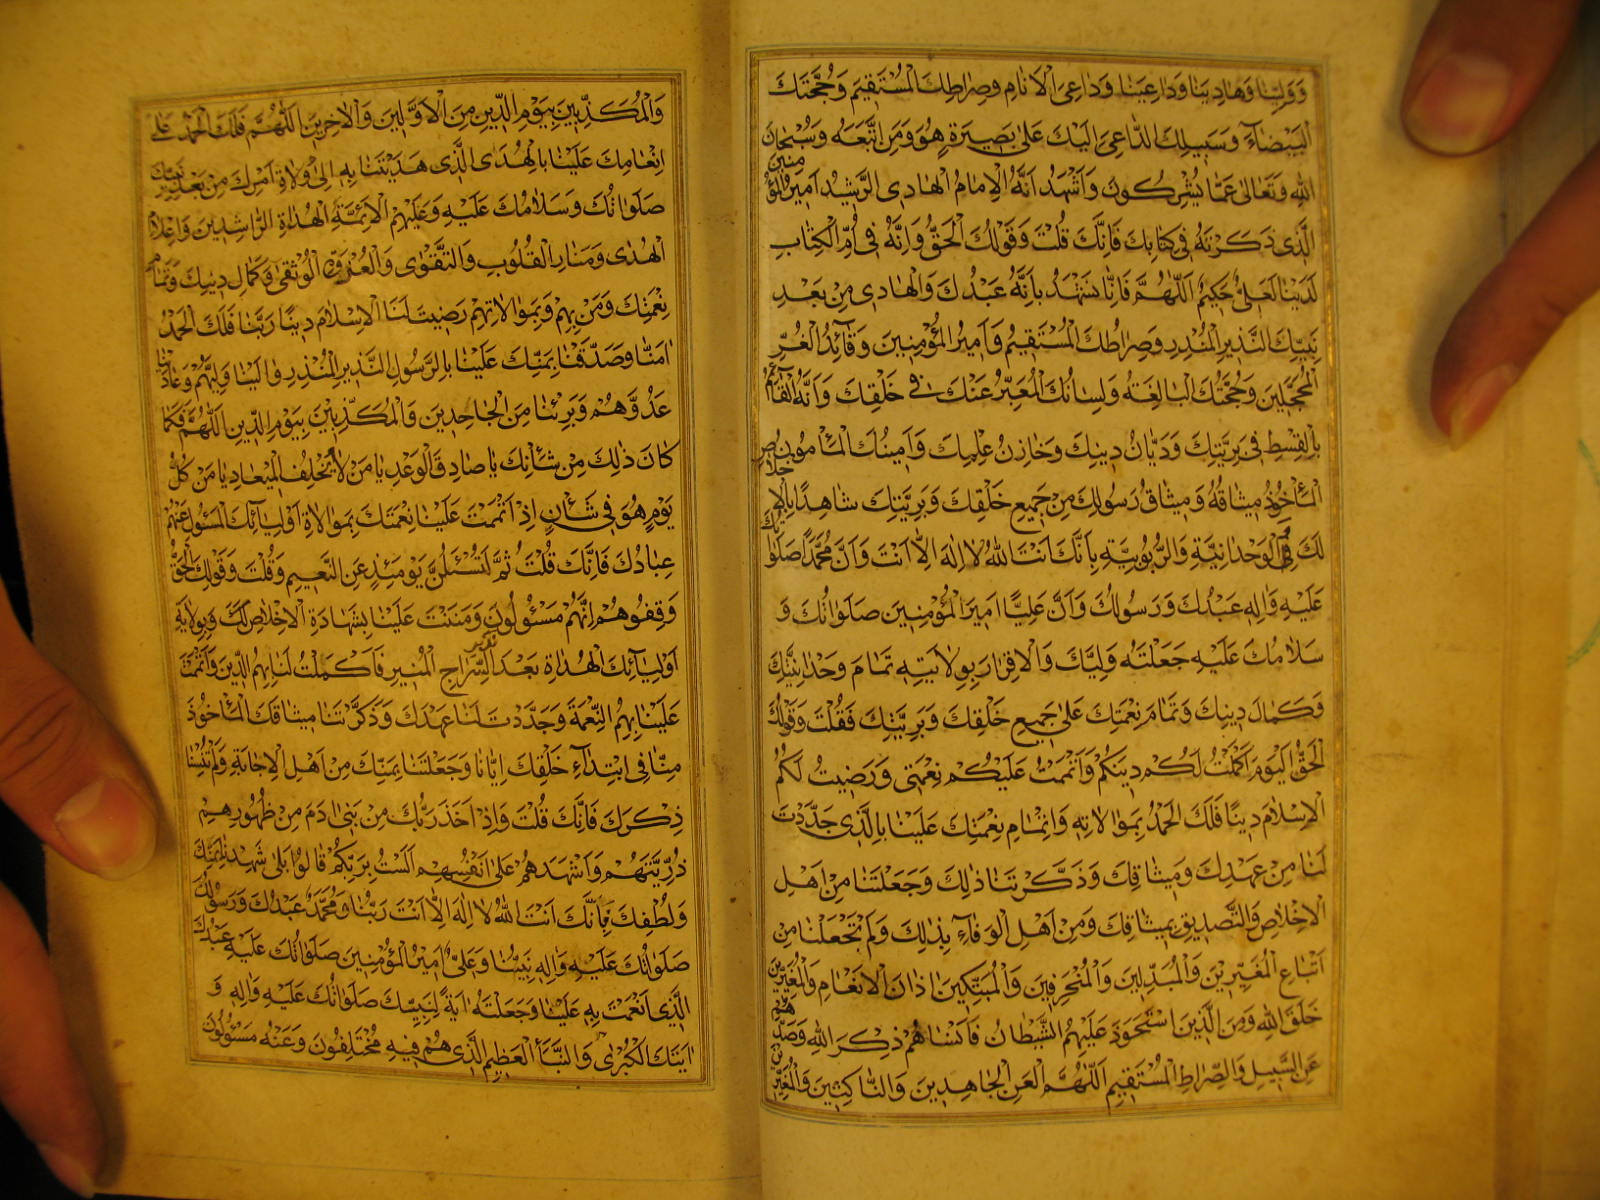 وَوَلِيِّنا وَهادِينا وَداعِينا وَداعِيَ الْاَنامِ وَصِراطِكَ الْمُسْتَقِيمِ وَحُجَّتِكَ
الْبَيْضآءَ وَسَبِيلِكَ الدّاعِيَ اِلَيْكَ عَلىٰ بَصِيرَةٍ هُوَ وَمَنِ اتَّبَعَهُ وَسُبْحانَ
اللهِ وَتَعالىٰ عَمّا يُشْرِكُونَ وَاَشْهَدُ اَنَّهُ الْاِمامُ الْهادِى الرَّشِيدُ اَمِيرُ الْمُؤْمِنِينَ
الَّذِى ذَكَرْتَهُ فِى كِتابِكَ فَاِنَّكَ قُلْتَ وَقَوْلُكَ الْحَقُّ وَاِنَّهُ فِى اُمِّ الْكِتابِ
لَدَيْنا لَعَلِىٌّ حَكِيمٌ اَللّٰهُمَّ فَاِنّا نَشْهَدُ بِاَنَّهُ عَبْدُكَ وَالْهادِى مِنْ بَعْدِ
نَبِيِّكَ النَّذِيرِ الْمُنْذِرِ وَصِراطُكَ الْمُسْتَقِيمُ وَاَمِيرُ الْمُؤْمِنِينَ وَقآئِدُ الْغُرِّ
الْمُحَجَّلِينَ وَحُجَّتُكَ الْبالِغَةُ وَلِسانُكَ الْمُعَبِّرُ عَنْكَ فِى خَلْقِكَ وَاَنَّهُ الْقآئِمُ
بِالْقِسْطِ فِى بَرِيَّتِكَ وَدَيّانُ دِينِكَ وَخازِنُ عِلْمِكَ وَاَمِينُكَ الْمَاْمُونُ
الْمَاْخُوذُ مِيثاقُهُ وَمِيثاقُ رَسُولِكَ مِنْ جَمِيعِ خَلْقِكَ وَبَرِيَّتِكَ شاهِدًا بِالْاِخْلاصِ
لَكَ وَالْوَحْدانِيَّةِ وَالرُّبُوبِيَّةِ بِاَنَّكَ اَنْتَ اللهُ لا اِلٰهَ اِلّا اَنْتَ وَاَنَّ مُحَمَّدًا صَلَواتُكَ
عَلَيْهِ وَاٰلِهِ عَبْدُكَ وَرَسُولُكَ وَاَنَّ عَلِيًّا اَمِيرَ الْمُؤْمِنِينَ صَلَواتُكَ وَ
سَلامُكَ عَلَيْهِ جَعَلْتَهُ وَلِيَّكَ وَالْاِقْرارَ بِوِلايَتِهِ تَمامَ وَحْدانِيَّتِكَ
وَكَمالَ دِينِكَ وَتَمامَ نِعْمَتِكَ عَلىٰ جَمِيعِ خَلْقِكَ وَبَرِيَّتِكَ فَقُلْتَ وَقَوْلُكَ
الْحَقُّ الْيَوْمَ اَكْمَلْتُ لَكُمْ دِينَكُمْ وَاَتْمَمْتُ عَلَيْكُمْ نِعْمَتِى وَرَضِيتُ لَكُمُ
الْاِسْلامَ دِينًا فَلَكَ الْحَمْدُ بِمُوالاتِهِ وَاِتْمامِ نِعْمَتِكَ عَلَيْنا بِالَّذِى جَدَّدْتَ
لَنا مِنْ عَهْدِكَ وَمِيثاقِكَ وَذَكَّرْتَنا ذٰلِكَ وَجَعَلْتَنا مِنْ اَهْلِ
الْاِخْلاصِ وَالتَّصْدِيقِ بِمِيثاقِكَ وَمِنْ اَهْلِ الْوَفآءِ بِذٰلِكَ وَلَمْ تَجْعَلْنا مِنْ
اَتْباعِ الْمُغَيِّرِينَ وَالْمُبَدِّلِينَ وَالْمُنْحَرِفِينَ وَالْمُبَتِّكِينَ اٰذانَ الْاَنْعامِ وَالْمُغَيِّرِينَ
خَلْقَ اللهِ وَمِنَ الَّذِينَ اسْتَحْوَذَ عَلَيْهِمُ الشَّيْطانُ فَاَنْساهُمْ ذِكْرَ اللهِ وَصَدَّهُمْ
عَنِ السَّبِيلِ وَالصِّراطِ الْمُسْتَقِيمِ اَللّٰهُمَّ الْعَنِ الْجاحِدِينَ وَالنّاكِثِينَ وَالْمُغَيِّرِينَ
وَالْمُكَذِّبِينَ بِيَوْمِ الدِّينِ مِنَ الْاَوَّلِينَ وَالْاٰخِرِينَ اَللّٰهُمَّ فَلَكَ الْحَمْدُ عَلىٰ
اِنْعامِكَ عَلَيْنا بِالْهُدَى الَّذِى هَدَيْتَنا بِهِ اِلىٰ وُلاةِ اَمْرِكَ مِنْ بَعْدِ نَبِيِّكَ
صَلَواتُكَ وَسَلامُكَ عَلَيْهِ وَعَلَيْهِمُ الْاَئِمَّةِ الْهُداةِ الرّاشِدِينَ وَاَعْلامِ
الْهُدىٰ وَمَنارِ الْقُلُوبِ وَالتَّقْوٰى وَالْعُرْوَةِ الْوُثْقىٰ وَكَمالِ دِينِكَ وَتَمامِ
نِعْمَتِكَ وَمَنْ بِهِمْ وَبِمُوالاتِهِمْ رَضِيتَ لَنَا الْاِسْلامَ دِينًا رَبَّنا فَلَكَ الْحَمْدُ
اٰمَنّا وَصَدَّقْنا بِمَنِّكَ عَلَيْنا بِالرَّسُولِ النَّذِيرِ الْمُنْذِرِ وَالَيْنا وَلِيَّهُمْ وَعادَيْنا
عَدُوَّهُمْ وَبَرِئْنا مِنَ الْجاحِدِينَ وَالْمُكَذِّبِينَ بِيَوْمِ الدِّينِ اَللّٰهُمَّ فَكَما
كانَ ذٰلِكَ مِنْ شَاْنِكَ يا صادِقَ الْوَعْدِ يا مَنْ لا يُخْلِفُ الْمِيعادَ يا مَنْ كُلَّ
يَوْمٍ هُوَ فِى شَاْنٍ اِذْ اَتْمَمْتَ عَلَيْنا نِعْمَتَكَ بِمُوالاةِ اَوْلِيآئِكَ الْمَسْئُولِ عَنْهُمْ
عِبادُكَ فَاِنَّكَ قُلْتَ ثُمَّ لَتُسْئَلُنَّ يَوْمَئِذٍ عَنِ النَّعِيمِ وَقُلْتَ وَقَوْلُكَ الْحَقُّ
وَقِفُوهُمْ اِنَّهُمْ مَسْئُولُونَ وَمَنَنْتَ عَلَيْنا بِشَهادَةِ الْاِخْلاصِ لَكَ وَبِوِلايَةِ
اَوْلِيآئِكَ الْهُداةِ بَعْدَ النَّذِيرِ السِّراجِ الْمُنِيرِ فَاَكْمَلْتَ لَنا بِهِمُ الدِّينَ وَاَتْمَمْتَ
عَلَيْنا بِهِمُ النِّعْمَةَ وَجَدَّدْتَ لَنا عَهْدَكَ وَذَكَّرْتَنا مِيثاقَكَ الْمَاْخُوذَ
مِنّا فِى ابْتِدآءِ خَلْقِكَ اِيّانا وَجَعَلْتَنا بِمَنِّكَ مِنْ اَهْلِ الْاِجابَةِ وَلَمْ تُنْسِنا
ذِكْرَكَ فَاِنَّكَ قُلْتَ وَاِذْ اَخَذَ رَبُّكَ مِنْ بَنِى اٰدَمَ مِنْ ظُهُورِهِمْ
ذُرِّيَّتَهُمْ وَاَشْهَدَهُمْ عَلىٰ اَنْفُسِهِمْ اَلَسْتُ بِرَبِّكُمْ قالُوا بَلىٰ شَهِدْنا بِمَنِّكَ
وَلُطْفِكَ بِاَنَّكَ اَنْتَ اللهُ لا اِلٰهَ اِلّا اَنْتَ رَبُّنا وَمُحَمَّدٌ عَبْدُكَ وَرَسُولُكَ
صَلَواتُكَ عَلَيْهِ وَاٰلِهِ نَبِيُّنا وَعَلِىٌّ اَمِيرُ الْمُؤْمِنِينَ صَلَواتُكَ عَلَيْهِ عَبْدُكَ
الَّذِى اَنْعَمْتَ بِهِ عَلَيْنا وَجَعَلْتَهُ اٰيَةً لِنَبِيِّكَ صَلَواتُكَ عَلَيْهِ وَاٰلِهِ وَ
اٰيَتَكَ الْكُبْرٰى وَالنَّبَأَ الْعَظِيمَ الَّذِى هُمْ فِيهِ مُخْتَلِفُونَ وَعَنْهُ مَسْئُولُونَ